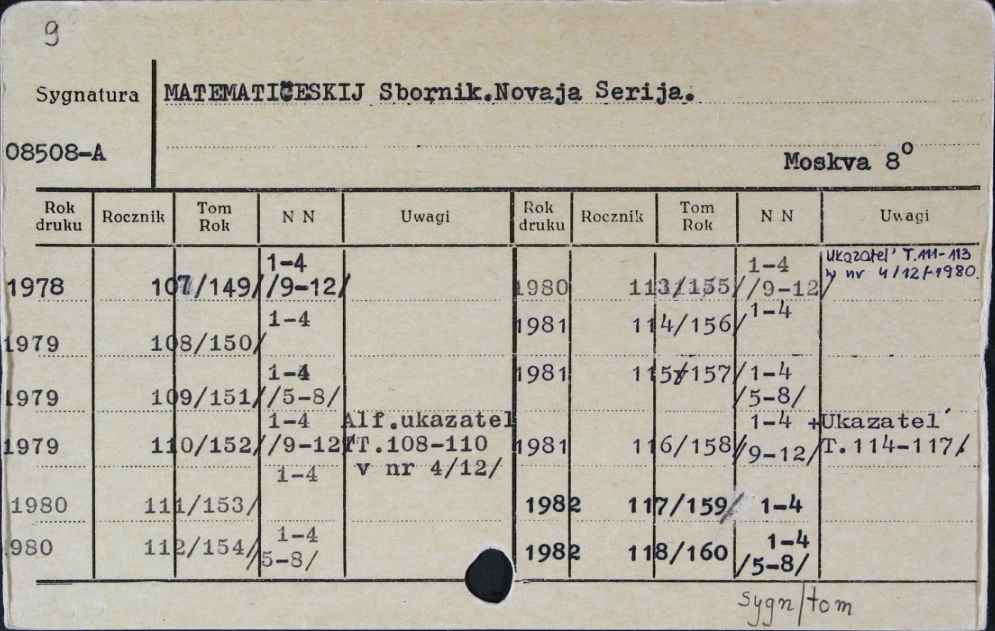 9
Sygnatura MATEMATIČESKIJ Sbornik.Novaja Serija.
08508-A Moskva 8°
Rok druku Rocznik Tom Rok N N Uwagi Rok druku Rocznik Tom Rok N N Uwagi
1978 107/149/ 1-4 /9-12/
1979 108/150/ 1-4
1979 109/151/ 1-4 /5-8/
1979 110/152/ 1-4 /9-12/ Alf.ukazatel T.108-110 v nr 4/12/
1980 111/153/ 1-4
980 112/154/ 1-4 5-8/
1980 113/155/ 1-4 /9-12/ Ukazatel' T.111-113 w nr 4/12/-1980.
1981 114/156/ 1-4
1981 115/157/ 1-4 /5-8/
1981 116/158/ 1-4 /9-12/ +Ukazatel' T.114-117/.
1982 117/159/ 1-4
1982 118/160 1-4 /5-8/
sygn/tom